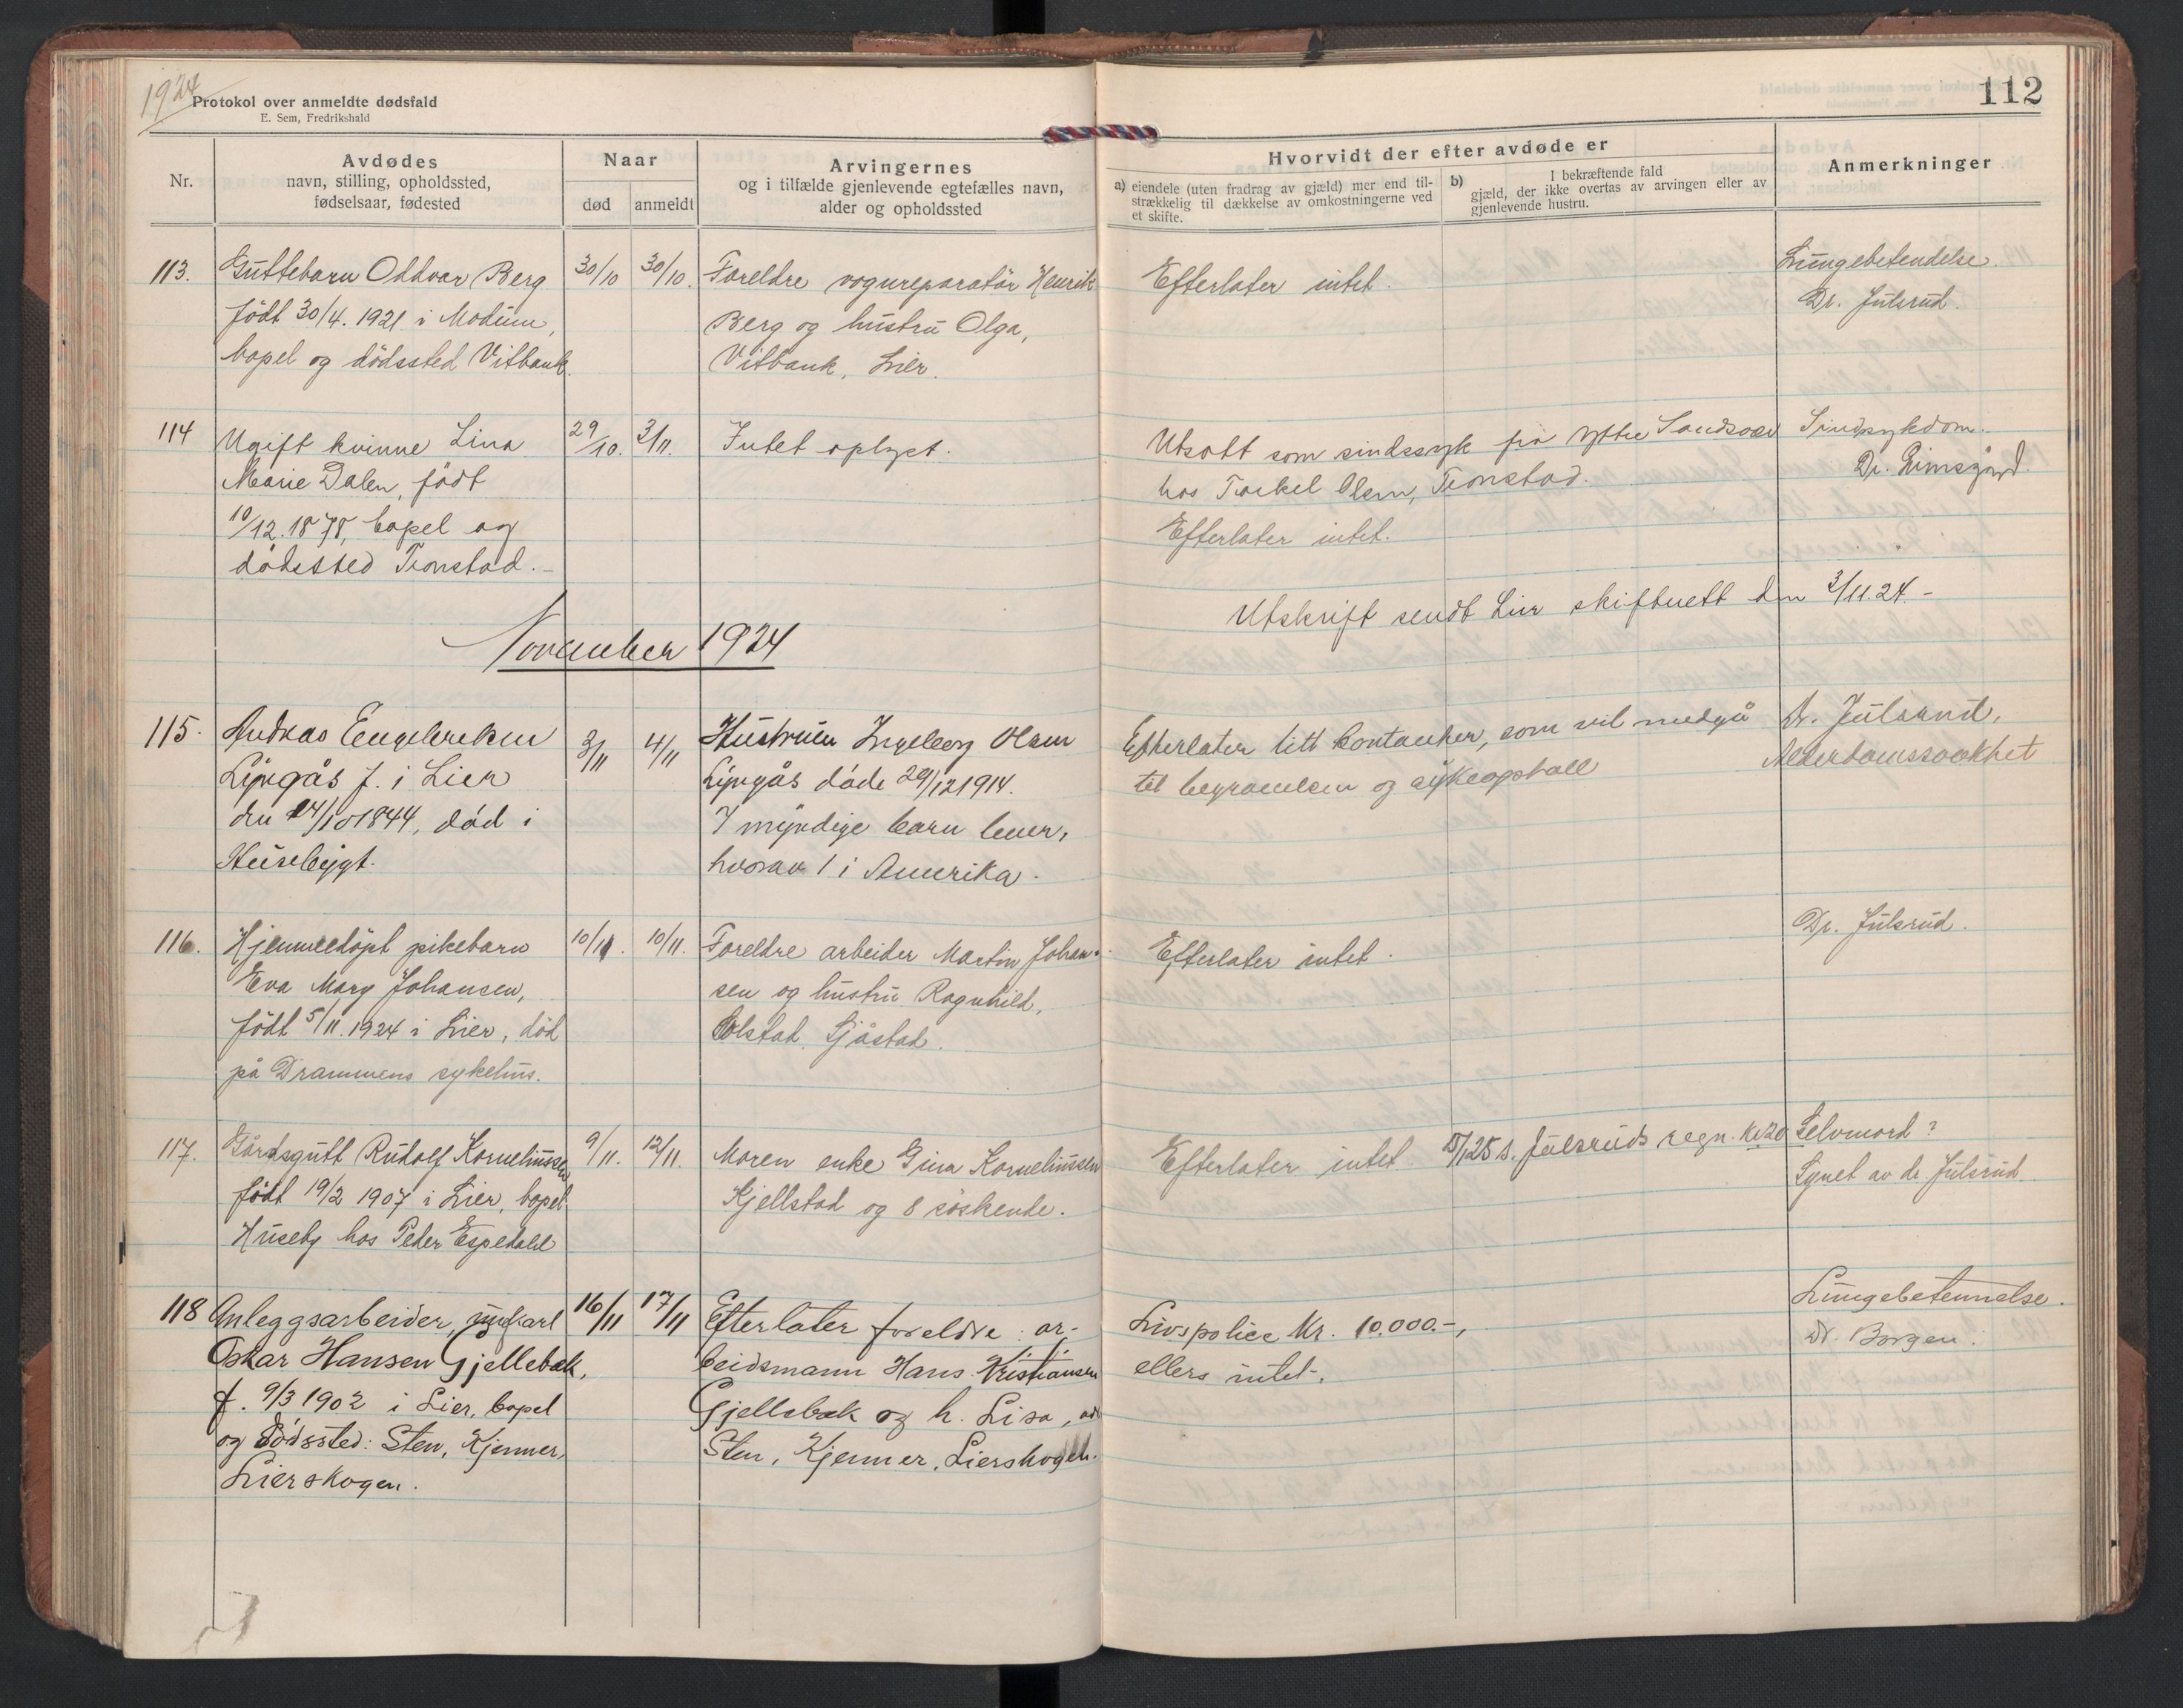 1924
Protokol over anmeldte dødsfald
E. Sem, Fredrikshald
112
Nr.
Avdødes
navn, stilling, opholdssted,
fødselsaar, fødested
Naar
død
anmeldt
Arvingernes
og i tilfælde gjenlevende egtefælles navn,
alder og opholdssted
Hvorvidt der efter avdøde er
a) eiendele (uten fradrag av gjæld) mer end til-
strækkelig til dækkelse av omkostningerne ved
et skifte.
b) I bekræftende fald
gjæld, der ikke overtas av arvingen eller av
gjenlevende hustru.
Anmerkninger
113.
Guttebarn Oddvar Berg
født 30/4. 1921 i Modum,
bopel og dödssted Vitbank.
30/10
30/10.
Foreldre vognreparatör Henrik
Berg og hustru Olga,
Vitbank, Lier.
Efterlater intet.
Lungebetendelse.
Dr. Julsrud.
114
Ugift kvinne Lina
Marie Dalen, født
10/12. 1878, bopel og
dödssted Tronstad.-
29/10.
3/11.
Intet oplyst.
Utsatt som sindssyk fra Ytre Sandsvær
hos Torkel Olsen, Tronstad.
Efterlater intet.
Sindsykdom.
Dr.
Utskrift sendt Lier skifterett den 3/11.24.-
November 1924
115.
Andreas Engebretsen
Lyngås f. i Lier
den 14/10 1844, död i
Husebygt.
3/11
4/11
Hustruen Ingeborg Olsen
Lyngås döde 29/12 1914.
7 myndige barn lever,
hvorav 1 i Amerika.
Efterlater litt kontanter, som vil medgå
til begravelsen og sykeophold
Dr. Julsrud.
Alderdomssvakhet
116.
Hjemmedöpt pikebarn
Eva Mary Johansen,
födt 5/11. 1924 i Lier, död
på Drammens sykehus.
10/11.
10/11.
Foreldre arbeider Martin Johan-
sen og hustru Ragnhild,
Olstad, Sjåstad.
Efterlater intet.
Dr. Julsrud.
117.
Gårdsgutt Rudolf Korneliussen
födt 19/2 1907 i Lier, bopel
Huseby hos Peder Espedahl
9/11.
12/11.
Moren enke Gina Korneliussen
Kjellstad og 8 söskende.
Efterlater intet.
Julsruds regn. kr 20
Selvmord?
Synet av dr. Julsrud.
118
Anleggsarbeider, ungkarl
Oskar Hansen Gjellebæk,
f. 9/3 1902 i Lier, bopel
og dödssted: Sten, Kjenner,
Lierskogen.
16/11
17/11
Efterlater foreldre: ar-
beidsmann Hans Kristiansen
Gjellebæk og h. Lisa, adr
Sten, Kjenner, Lierskogen.
Livspolice Kr. 10.000.-,
ellers intet.
Lungebetennelse.
Dr. Borgen.